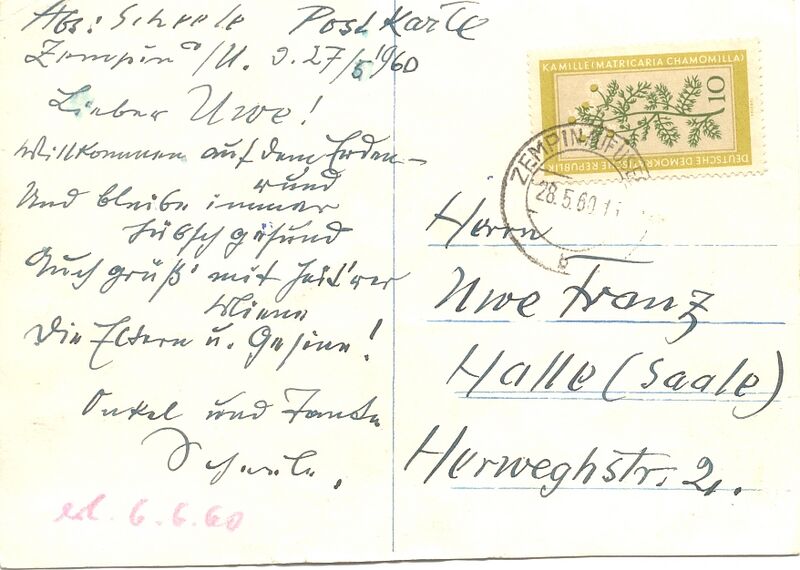 Abs: Scheele Postkarte
Zempin/U. d. 27/5 1960
Lieber Uwe!
Willkommen auf dem Erden-
rund
Und bleibe immer
hübsch gesund
Auch grüß' mit heit'rer
Miene
Die Eltern u. Gesine!
Onkel und Tante
Scheele.
erl. 6.6.60
KAMILLE (MATRICARIA CHAMOMILLA)
10
DEUTSCHE DEMOKRATISCHE REPUBLIK
ZEMPIN
28.5.60
b
Herrn
Uwe Franz
Halle (Saale)
Herweghstr. 21.